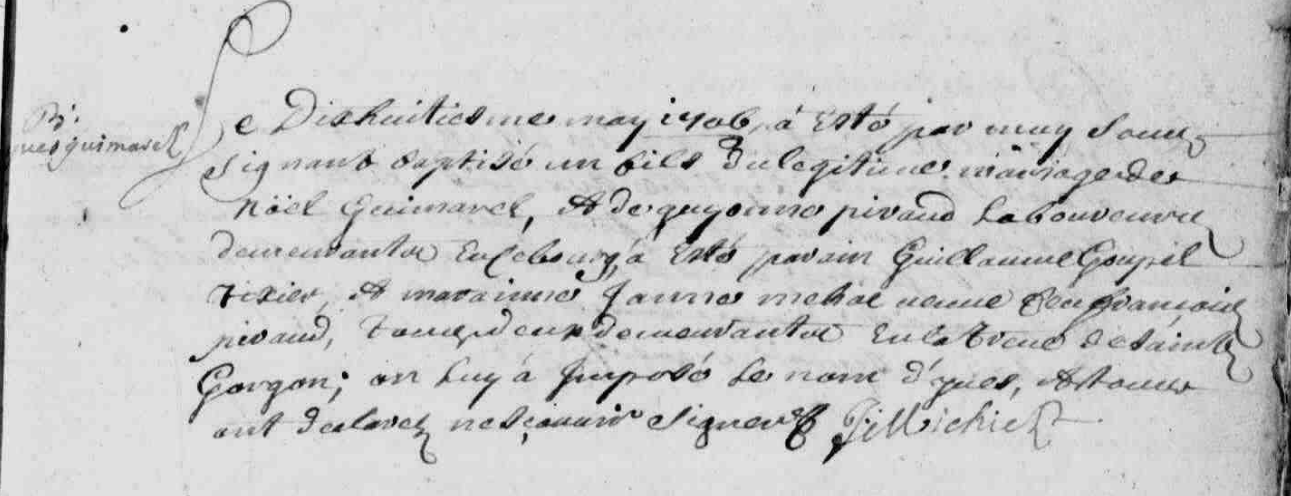 B.
yues guimarel
Le Dixhuitiesme may 1706, à Esté par moy soubz
signant baptisé un fils du legitime mariage de
Noël Guimarel, Et de guyonne pivaud Laboureurs
demeurants En ce bourg, à Esté parain Guillaume Goupil
texier, Et marainne Janne nehoe veuve feu françois
pivaud, touz deux demeurants En la treve de sainct
Gorgon; on Luy à Imposé Le nom d'yues, Et touts
ont declarez ne sçavoir signer J Michiel